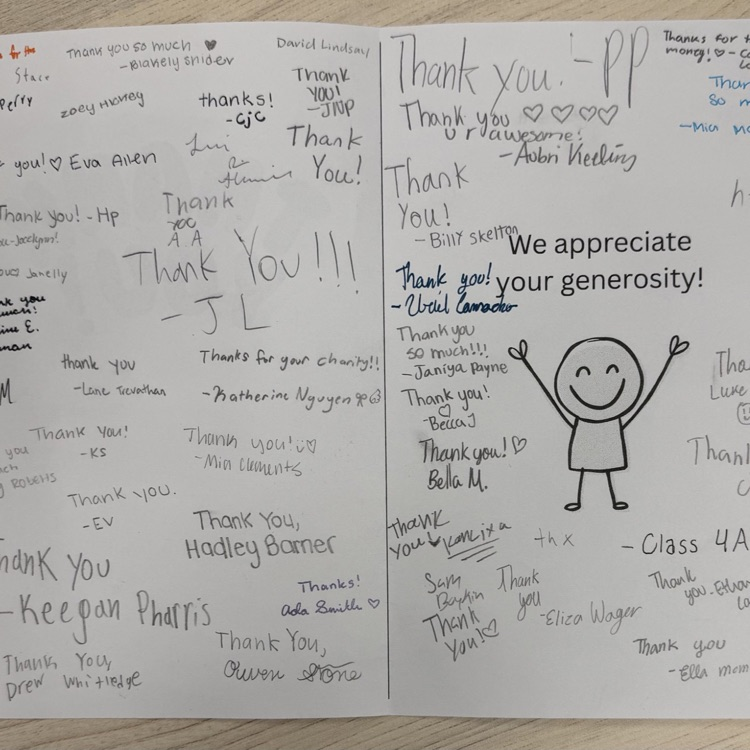 for the
Stace
Thank you so much ♥
-Blakely Snider
David Lindsay
Perry
Zoey
thanks!
-CJC
Thank
You!
-JNP
you!♡ Eva Allen
Thank
You!
Thank you! -Hp
Thank
you
A.A
-Jocelynn!
Janelly
Thank You!!!
- JL
you
E.
man
thank you
-Lane Trevathan
Thanks for your charity!!
-Katherine Nguyen
M
Thank You!
-KS
Thank you! ♡
-Mia Clements
you
Roberts
Thank you.
-EV
Thank You,
Hadley Barner
Thank You
-Keegan Pharris
Thanks!
Ada Smith ♡
Thank You,
Drew Whitledge
Thank You,
Owen Stone
Thank you! -PP
Thanks for t
money!♡ - C
Thank you ♡♡♡♡
u r awesome!
-Aubri Keeling
Than
so m
-Mia M
Thank
You!
-Billy Skelton
h
We appreciate
your generosity!
Thank you!
Thank you
so much!!!
-Janiya Payne
Thank you!
♡
-Becca J
Tha
Luke
Thank you! ♡
Bella M.
Thank
Thank
you!
thx
- Class 4A
Sam
Thank
you
-Eliza Wager
Thank
you -Ethan
Thank
You!♡
Thank you
-Ella mom